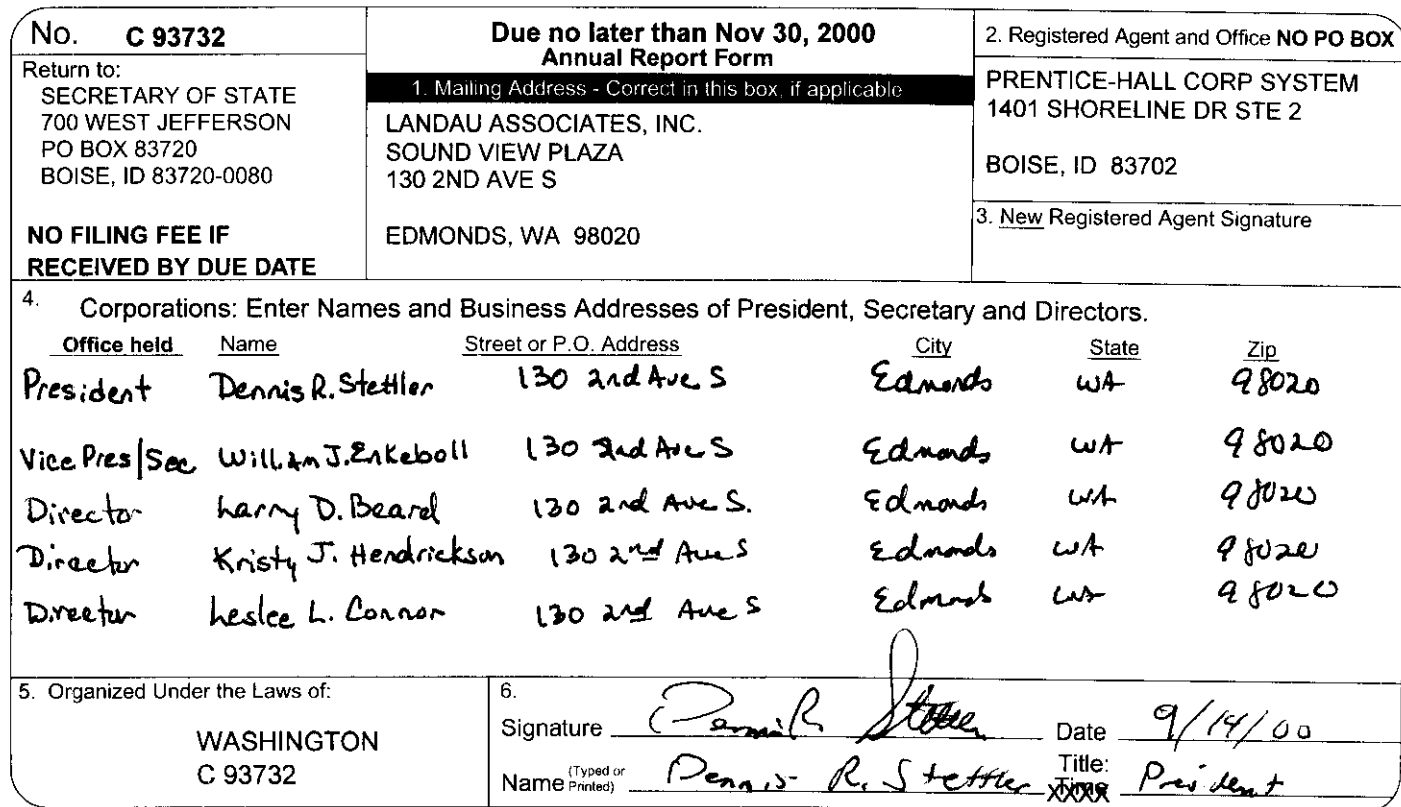 No. C 93732
Return to:
SECRETARY OF STATE
700 WEST JEFFERSON
PO BOX 83720
BOISE, ID 83720-0080
NO FILING FEE IF
RECEIVED BY DUE DATE
Due no later than Nov 30, 2000
Annual Report Form
1. Mailing Address - Correct in this box, if applicable
LANDAU ASSOCIATES, INC.
SOUND VIEW PLAZA
130 2ND AVE S
EDMONDS, WA 98020
2. Registered Agent and Office NO PO BOX
PRENTICE-HALL CORP SYSTEM
1401 SHORELINE DR STE 2
BOISE, ID 83702
3. New Registered Agent Signature
4. Corporations: Enter Names and Business Addresses of President, Secretary and Directors.
Office held Name Street or P.O. Address City State Zip
President Dennis R. Stettler 130 2nd Ave S Edmonds WA 98020
Vice Pres/Sec William J. Enkeboll 130 2nd Ave S Edmonds WA 98020
Director Larry D. Beard 130 2nd Ave S. Edmonds WA 98020
Director Kristy J. Hendrickson 130 2nd Ave S Edmonds WA 98020
Director Leslee L. Connor 130 2nd Ave S Edmonds WA 98020
5. Organized Under the Laws of:
WASHINGTON
C 93732
6.
Signature Dennis R Stettler Date 9/14/00
Name (Typed or Printed) Dennis R. Stettler Title: President